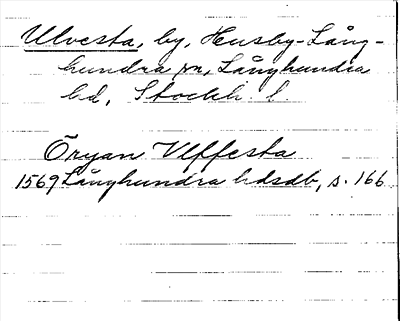 Ulvesta, by, Husby-Lång-
hundra sn, Långhundra
hd, Stockh. l.
Öryan Vlffesta
1569 Långhundra hdsdb, s. 166